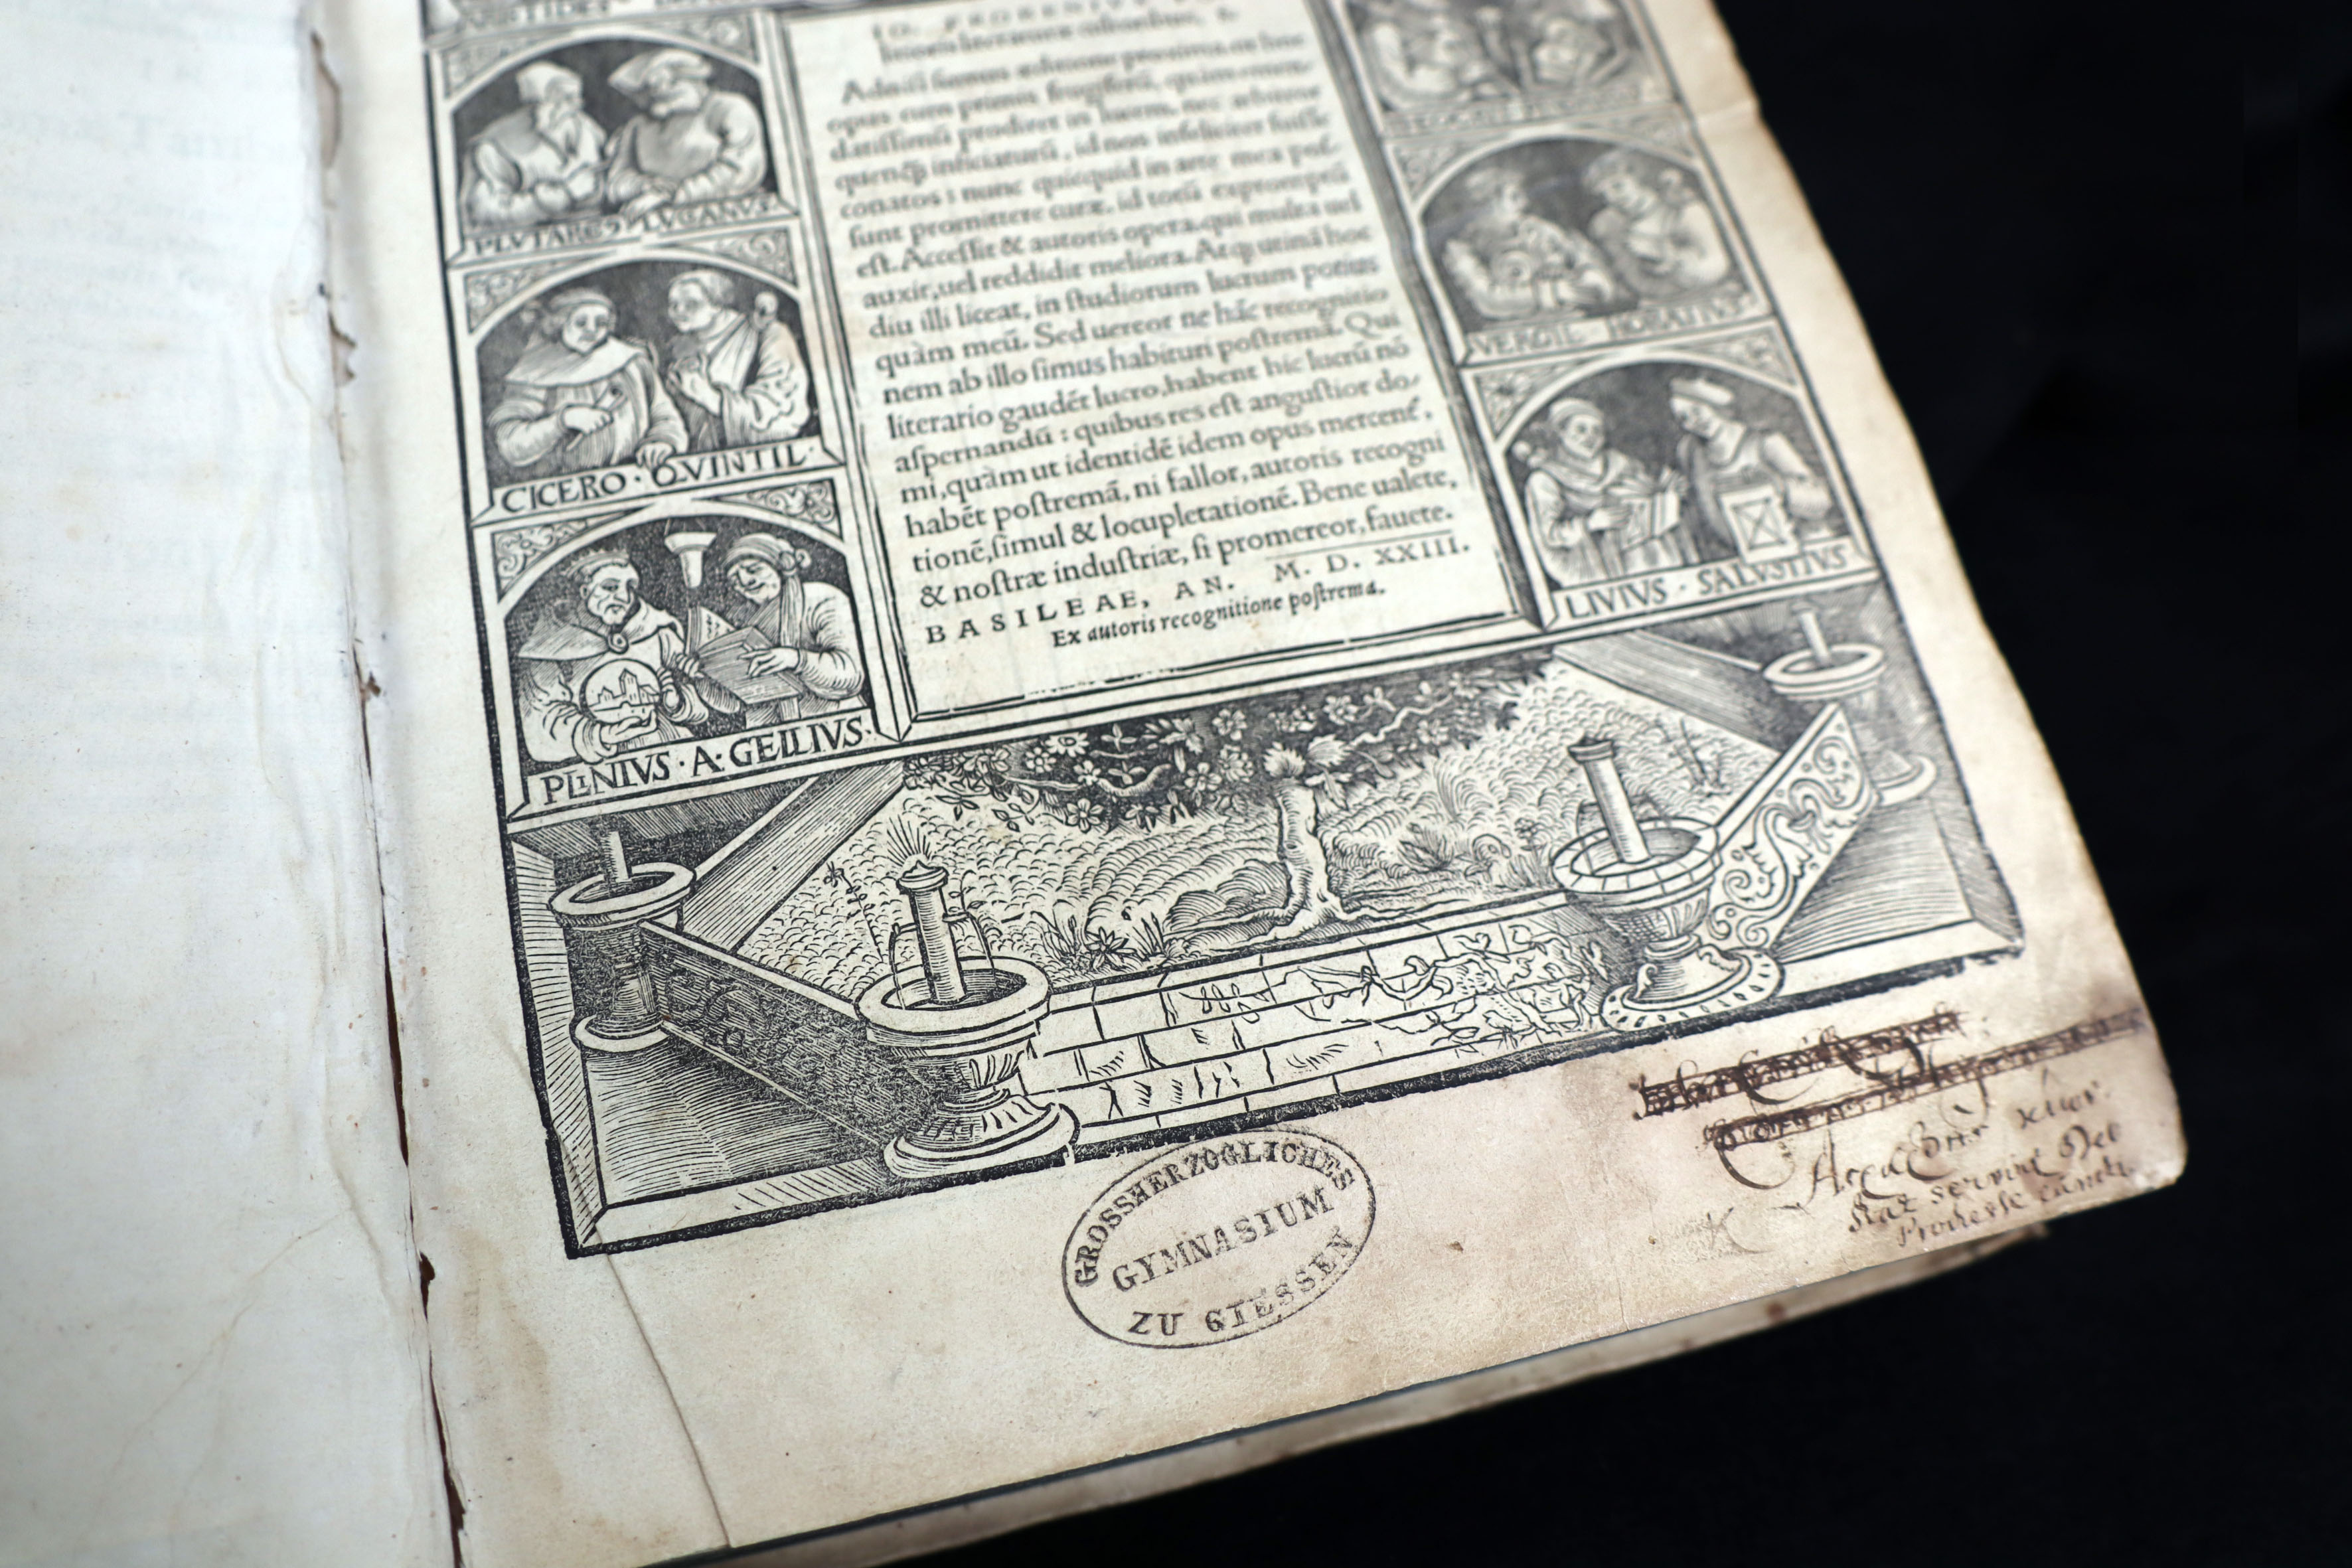 IO. FROBENIVS
Adnisi sumus æditione proxima, ut hoc
opus cum primis frugiferū, quàm emen-
datissimū prodiret in lucem, nec arbitror
quenq̃ inficiaturū, id non infeliciter fuisse
conatos: nunc quicquid in arte mea pos-
sunt promittere curæ, id totū expromptū
est. Accessit & autoris opera, qui multa uel
auxit, uel reddidit meliora. Atq; utinā hoc
diu illi liceat, in studiorum lucrum potius
quàm meū. Sed uereor ne hāc recognitio
nem ab illo simus habituri postremā. Qui
literario gaudēt lucro, habent hic lucrū nō
aspernandū: quibus res est angustior do-
mi, quàm ut identidē idem opus mercent̃,
habēt postremā, ni fallor, autoris recogni
tionē, simul & locupletationē. Bene ualete,
& nostræ industriæ, si promereor, fauete.
BASILEAE, AN. M. D. XXIII.
Ex autoris recognitione postrema.
PLVTARC9 · LVCANVS
CICERO · QVINTIL ·
PLINIVS · A · GELLIVS ·
VERGIL HORATIVS
LIVIVS · SALVSTIVS
GROSSHERZOGLICHES
GYMNASIUM
ZU GIESSEN
servint Deo
Prodesse cunctis